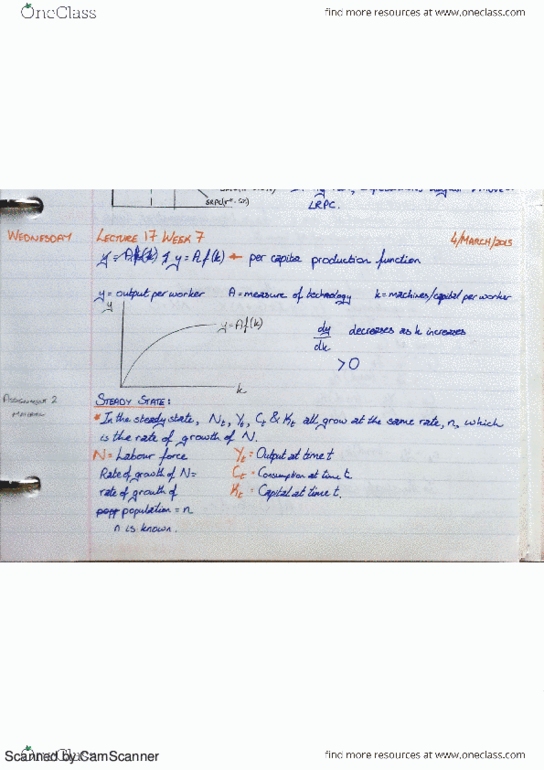 OneClass
find more resources at www.oneclass.com
LRPC.
WEDNESDAY
LECTURE 17 WEEK 7
4/MARCH/2015
y = Af(k) y = Af(k) ← per capita production function
y = output per worker A = measure of technology k = machines/capital per worker
y
y = Af(k)
dy
dk
decreases as k increases
>0
k
ASSIGNMENT 2
MATERIAL
STEADY STATE:
* In the steady state, Nt, Yt, Ct & Kt all grow at the same rate, n, which
is the rate of growth of N.
N = Labour force
Yt = Output at time t
Rate of growth of N =
Ct = Consumption at time t.
rate of growth of
Kt = Capital at time t.
population = n
n is known.
Scanned by CamScanner
OneClass
find more resources at www.oneclass.com